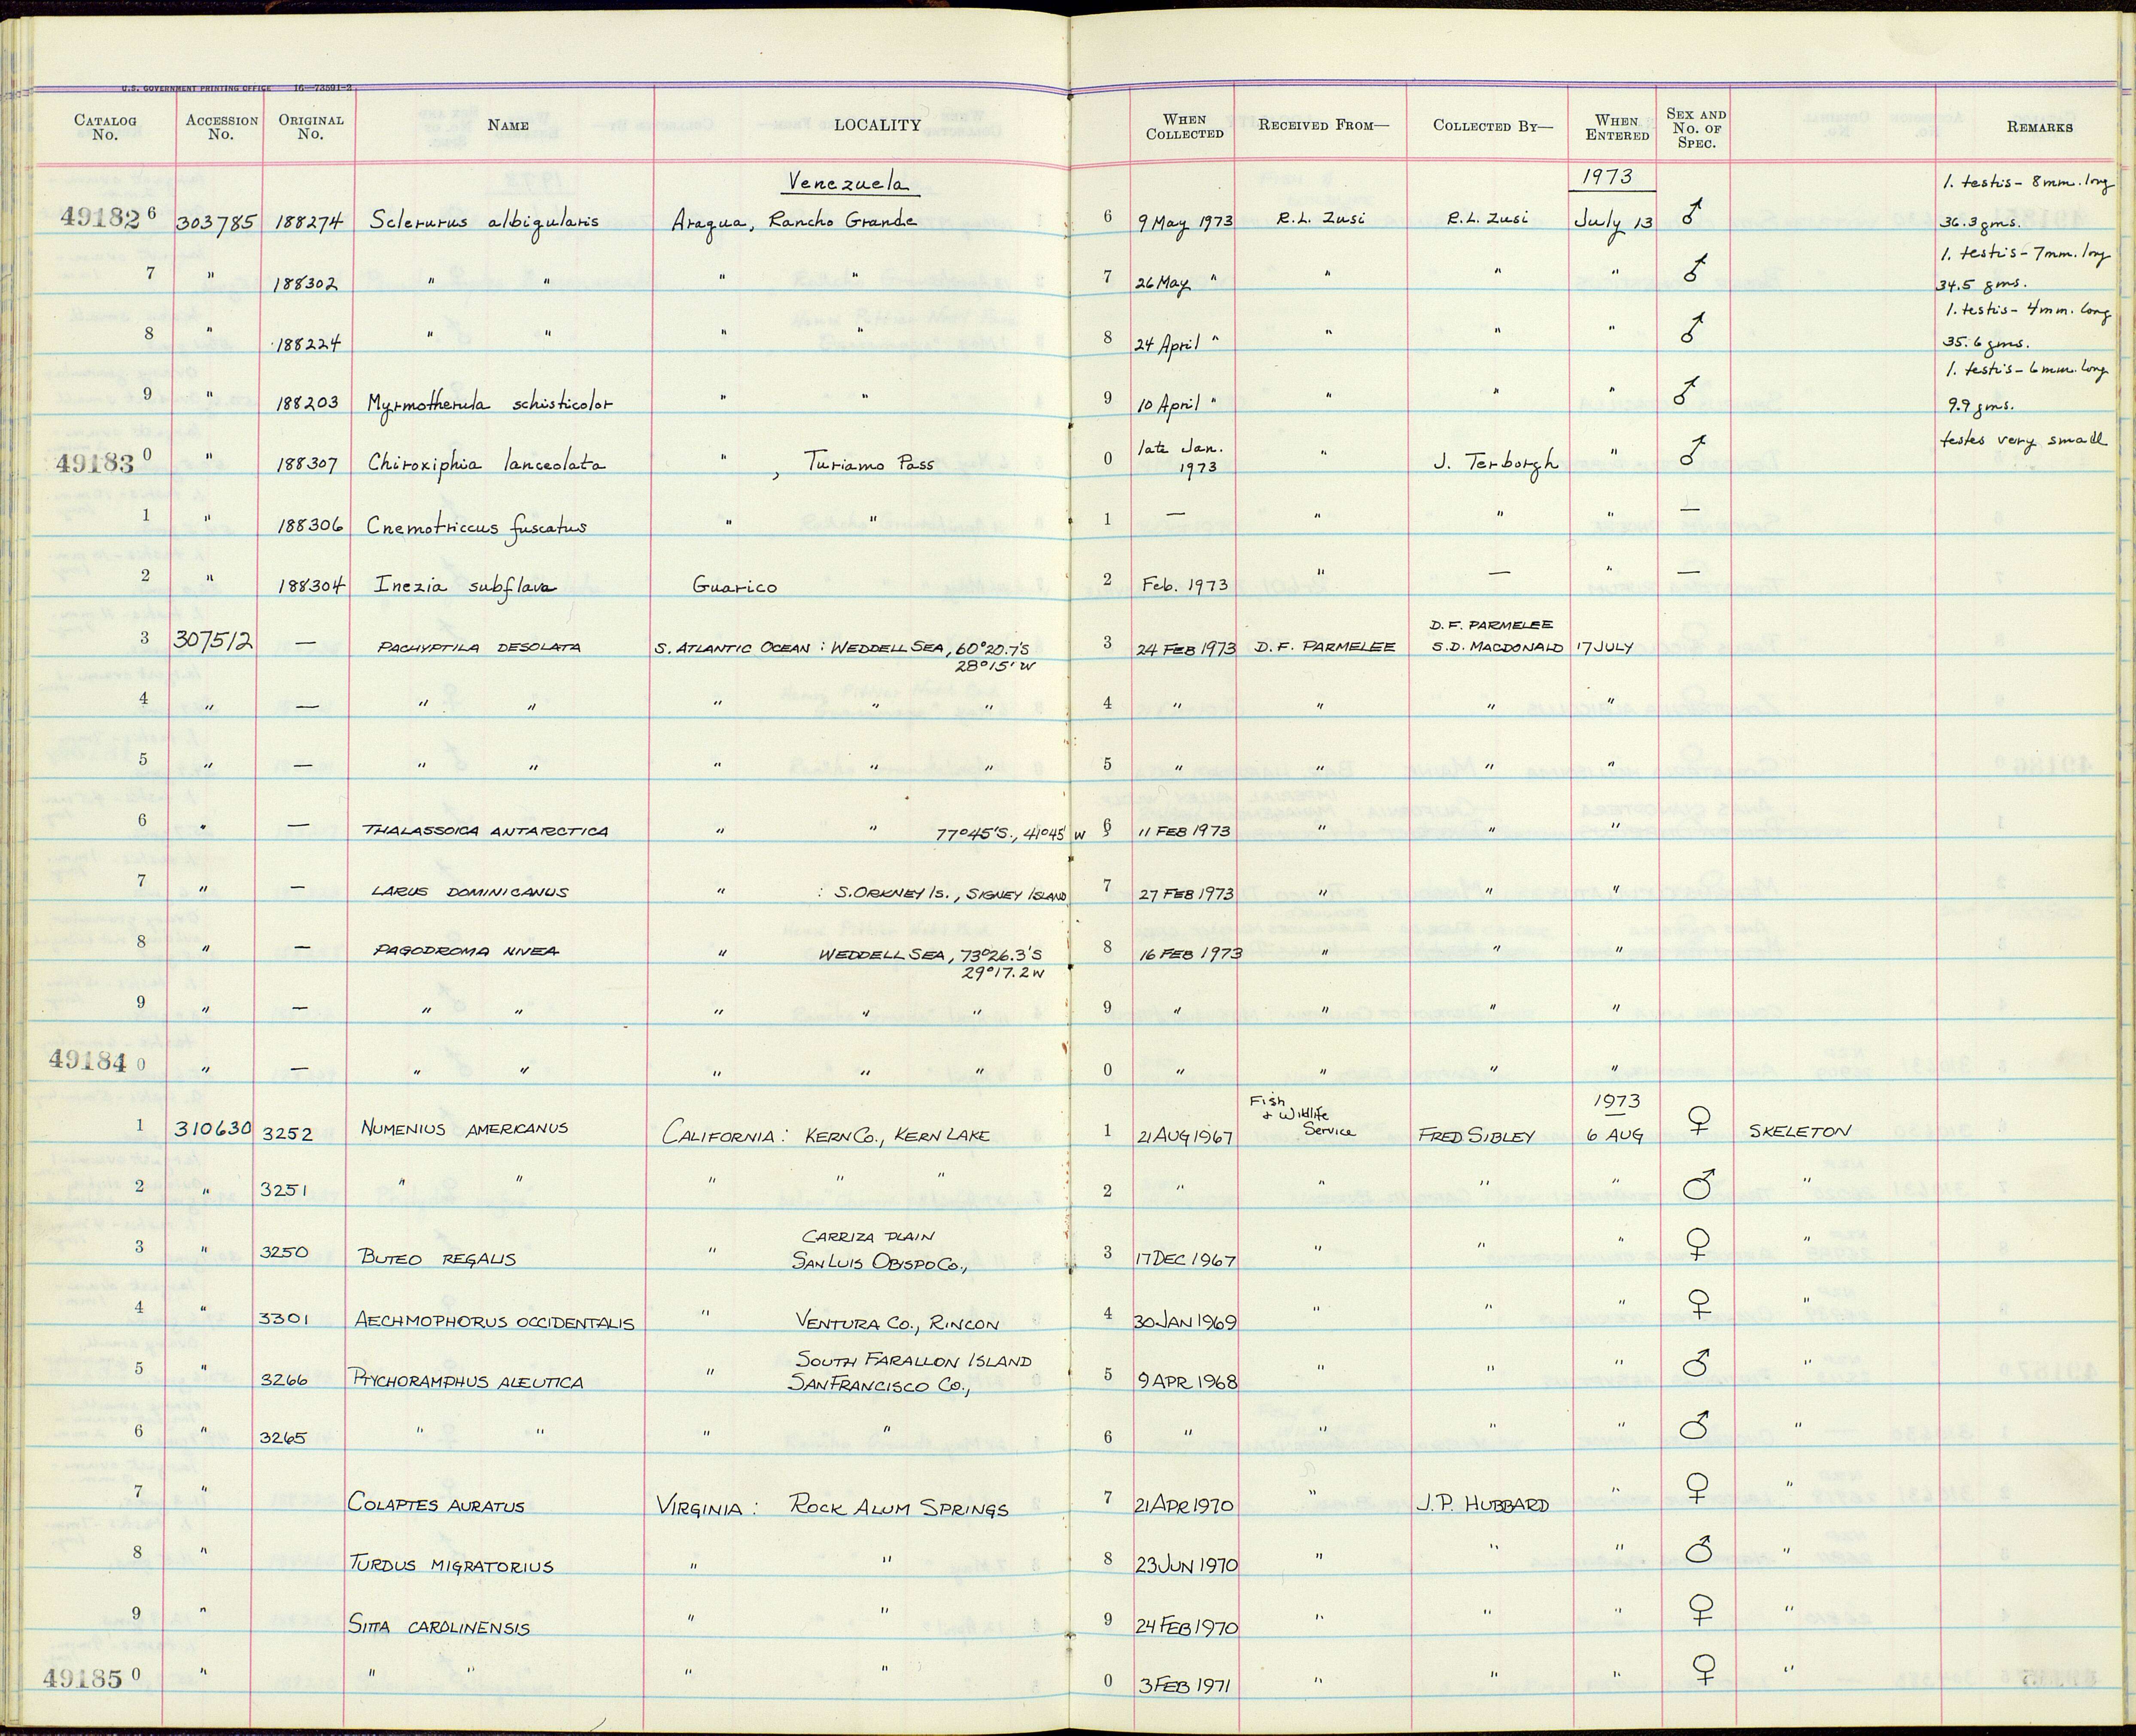 U.S. GOVERNMENT PRINTING OFFICE 16—73591-2
CATALOG No. ACCESSION No. ORIGINAL No. NAME LOCALITY WHEN COLLECTED RECEIVED FROM— COLLECTED BY— WHEN ENTERED SEX AND No. OF SPEC. REMARKS
Venezuela 1973 l. testis - 8mm. long
49182 6 303785 188274 Sclerurus albigularis Aragua, Rancho Grande 6 9 May 1973 R.L. Zusi R.L. Zusi July 13 ♂ 36.3 gms.
l. testis - 7mm. long
7 " 188302 " " " " 7 26 May " " " " ♂ 34.5 gms.
l. testis - 4mm. long
8 " 188224 " " " " 8 24 April " " " " ♂ 35.6 gms.
l. testis - 6mm. long
9 " 188203 Myrmotherula schisticolor " " 9 10 April " " " " ♂ 9.9 gms.
late Jan. testes very small
49183 0 " 188307 Chiroxiphia lanceolata " , Turiamo Pass 0 1973 " J. Terborgh " ♂
1 " 188306 Cnemotriccus fuscatus " " 1 — " " " —
2 " 188304 Inezia subflava Guarico 2 Feb. 1973 " — " —
D.F. PARMELEE
3 307512 — PACHYPTILA DESOLATA S. ATLANTIC OCEAN : WEDDELL SEA, 60°20.7'S 3 24 FEB 1973 D.F. PARMELEE S.D. MACDONALD 17 JULY
28°15' W
4 " — " " " " " 4 " " " "
5 " — " " " " " 5 " " " "
6 " — THALASSOICA ANTARCTICA " " 77°45'S., 41°45' W 6 11 FEB 1973 " " "
7 " — LARUS DOMINICANUS " : S. ORKNEY IS., SIGNEY ISLAND 7 27 FEB 1973 " " "
8 " — PAGODROMA NIVEA " WEDDELL SEA, 73°26.3'S 8 16 FEB 1973 " " "
29°17.2 W
9 " — " " " " " 9 " " " "
49184 0 " — " " " " " 0 " " " "
Fish & Wildlife 1973
1 310630 3252 NUMENIUS AMERICANUS CALIFORNIA : KERN CO., KERN LAKE 1 21 AUG 1967 Service FRED SIBLEY 6 AUG ♀ SKELETON
2 " 3251 " " " " " 2 " " " " ♂ "
CARRIZA PLAIN
3 " 3250 BUTEO REGALIS " SAN LUIS OBISPO CO., 3 17 DEC 1967 " " " ♀ "
4 " 3301 AECHMOPHORUS OCCIDENTALIS " VENTURA CO., RINCON 4 30 JAN 1969 " " " ♀ "
SOUTH FARALLON ISLAND
5 " 3266 PTYCHORAMPHUS ALEUTICA " SAN FRANCISCO CO., 5 9 APR 1968 " " " ♂ "
6 " 3265 " " " " 6 " " " " ♂ "
7 " COLAPTES AURATUS VIRGINIA : ROCK ALUM SPRINGS 7 21 APR 1970 " J.P. HUBBARD " ♀ "
8 " TURDUS MIGRATORIUS " " 8 23 JUN 1970 " " " ♂ "
9 " SITTA CAROLINENSIS " " 9 24 FEB 1970 " " " ♀ "
49185 0 " " " " " 0 3 FEB 1971 " " " ♀ "